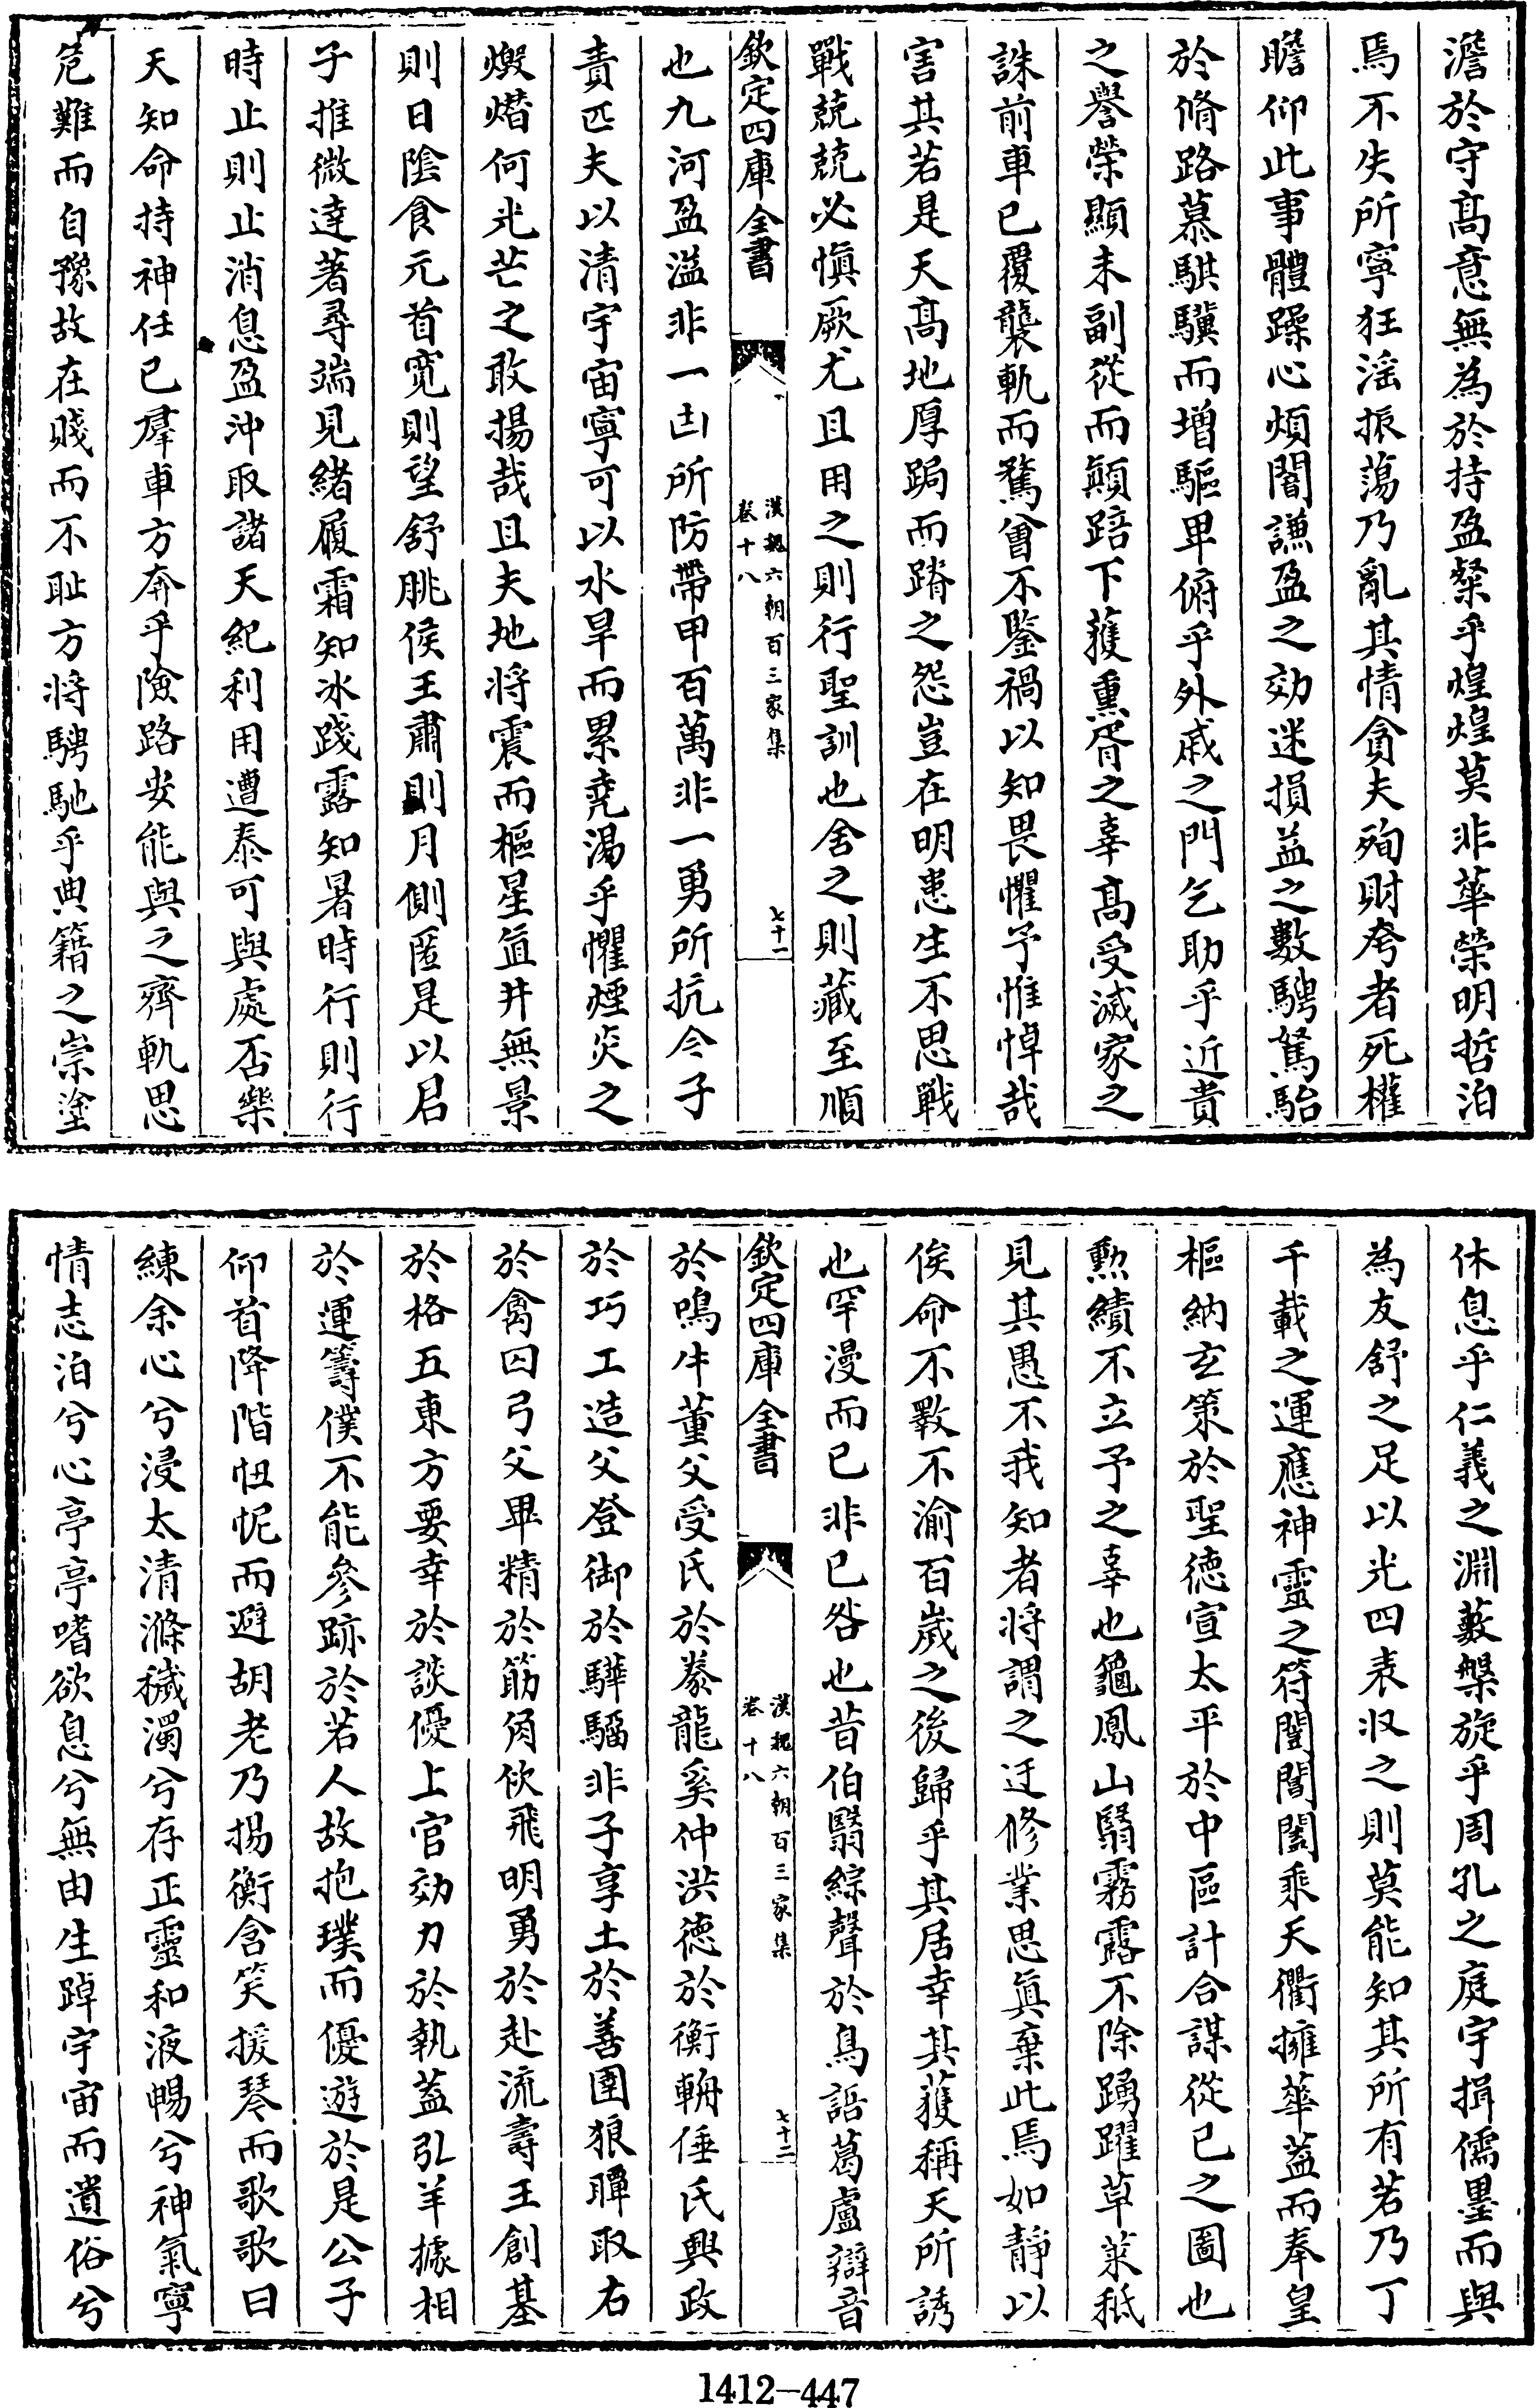 澹於守髙意無為於持盈粲乎煌煌莫非華榮明哲泊
焉不失所寧狂滛振蕩乃亂其情貪夫殉財夸者死權
瞻仰此事體躁心煩闇謙盈之効迷損益之數騁駑駘
於脩路慕騏驥而增驅卑俯乎外戚之門乞助乎近貴
之譽榮顯未副從而顛踣下獲熏胥之辜髙受滅家之
誅前車已覆襲軌而騖曾不鑒禍以知畏懼予惟悼哉
害其若是天髙地厚跼而蹐之怨豈在明患生不思戰
戰兢兢必慎厥尤且用之則行聖訓也舍之則藏至順
欽定四庫全書
漢魏六朝百三家集
卷十八
七十一
也九河盈溢非一凷所防帶甲百萬非一勇所抗今子
責匹夫以清宇宙寧可以水旱而累堯湯乎懼煙炎之
燬熸何光芒之敢揚哉且夫地將震而樞星直井無景
則日陰食元首寛則望舒朓侯王肅則月側匿是以君
子推微達著尋端見緒履霜知冰踐露知暑時行則行
時止則止消息盈沖取諸天紀利用遭泰可與處否樂
天知命持神任已羣車方奔乎險路安能與之齊軌思
危難而自豫故在賤而不耻方將騁馳乎典籍之崇塗
休息乎仁義之淵藪槃旋乎周孔之庭宇揖儒墨而與
為友舒之足以光四表収之則莫能知其所有若乃丁
千載之運應神靈之符闓閶闔乘天衢擁華葢而奉皇
樞納玄策於聖德宣太平於中區計合謀從已之圖也
勲績不立予之辜也龜鳳山翳霧露不除踴躍草萊秪
見其愚不我知者將謂之迂修業思眞棄此焉如靜以
俟命不斁不渝百歲之後歸乎其居幸其獲稱天所誘
也罕漫而已非已咎也昔伯翳綜聲於鳥語葛盧辯音
欽定四庫全書
漢魏六朝百三家集
卷十八
七十二
於鳴牛董父受氏於豢龍奚仲洪德於衡輈倕氏興政
於巧工造父登御於驊騮非子享土於善圉狼瞫取右
於禽囚弓父畢精於筋角佽飛明勇於赴流壽王創基
於格五東方要幸於談優上官効力於執葢弘羊據相
於運籌僕不能參跡於若人故抱璞而優遊於是公子
仰首降階忸怩而避胡老乃揚衡含笑援琴而歌歌曰
練余心兮浸太清滌穢濁兮存正靈和液暢兮神氣寧
情志泊兮心亭亭嗜欲息兮無由生踔宇宙而遺俗兮
1412—447